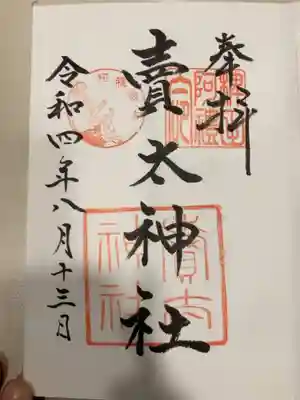 奉拝
賣太神社
令和四年八月十三日
賣太
神社